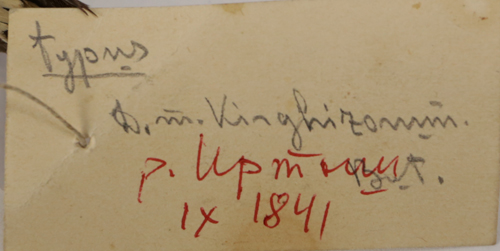 typus
D. m. Kirghizorum.
р. Иртыш But.
IX 1841